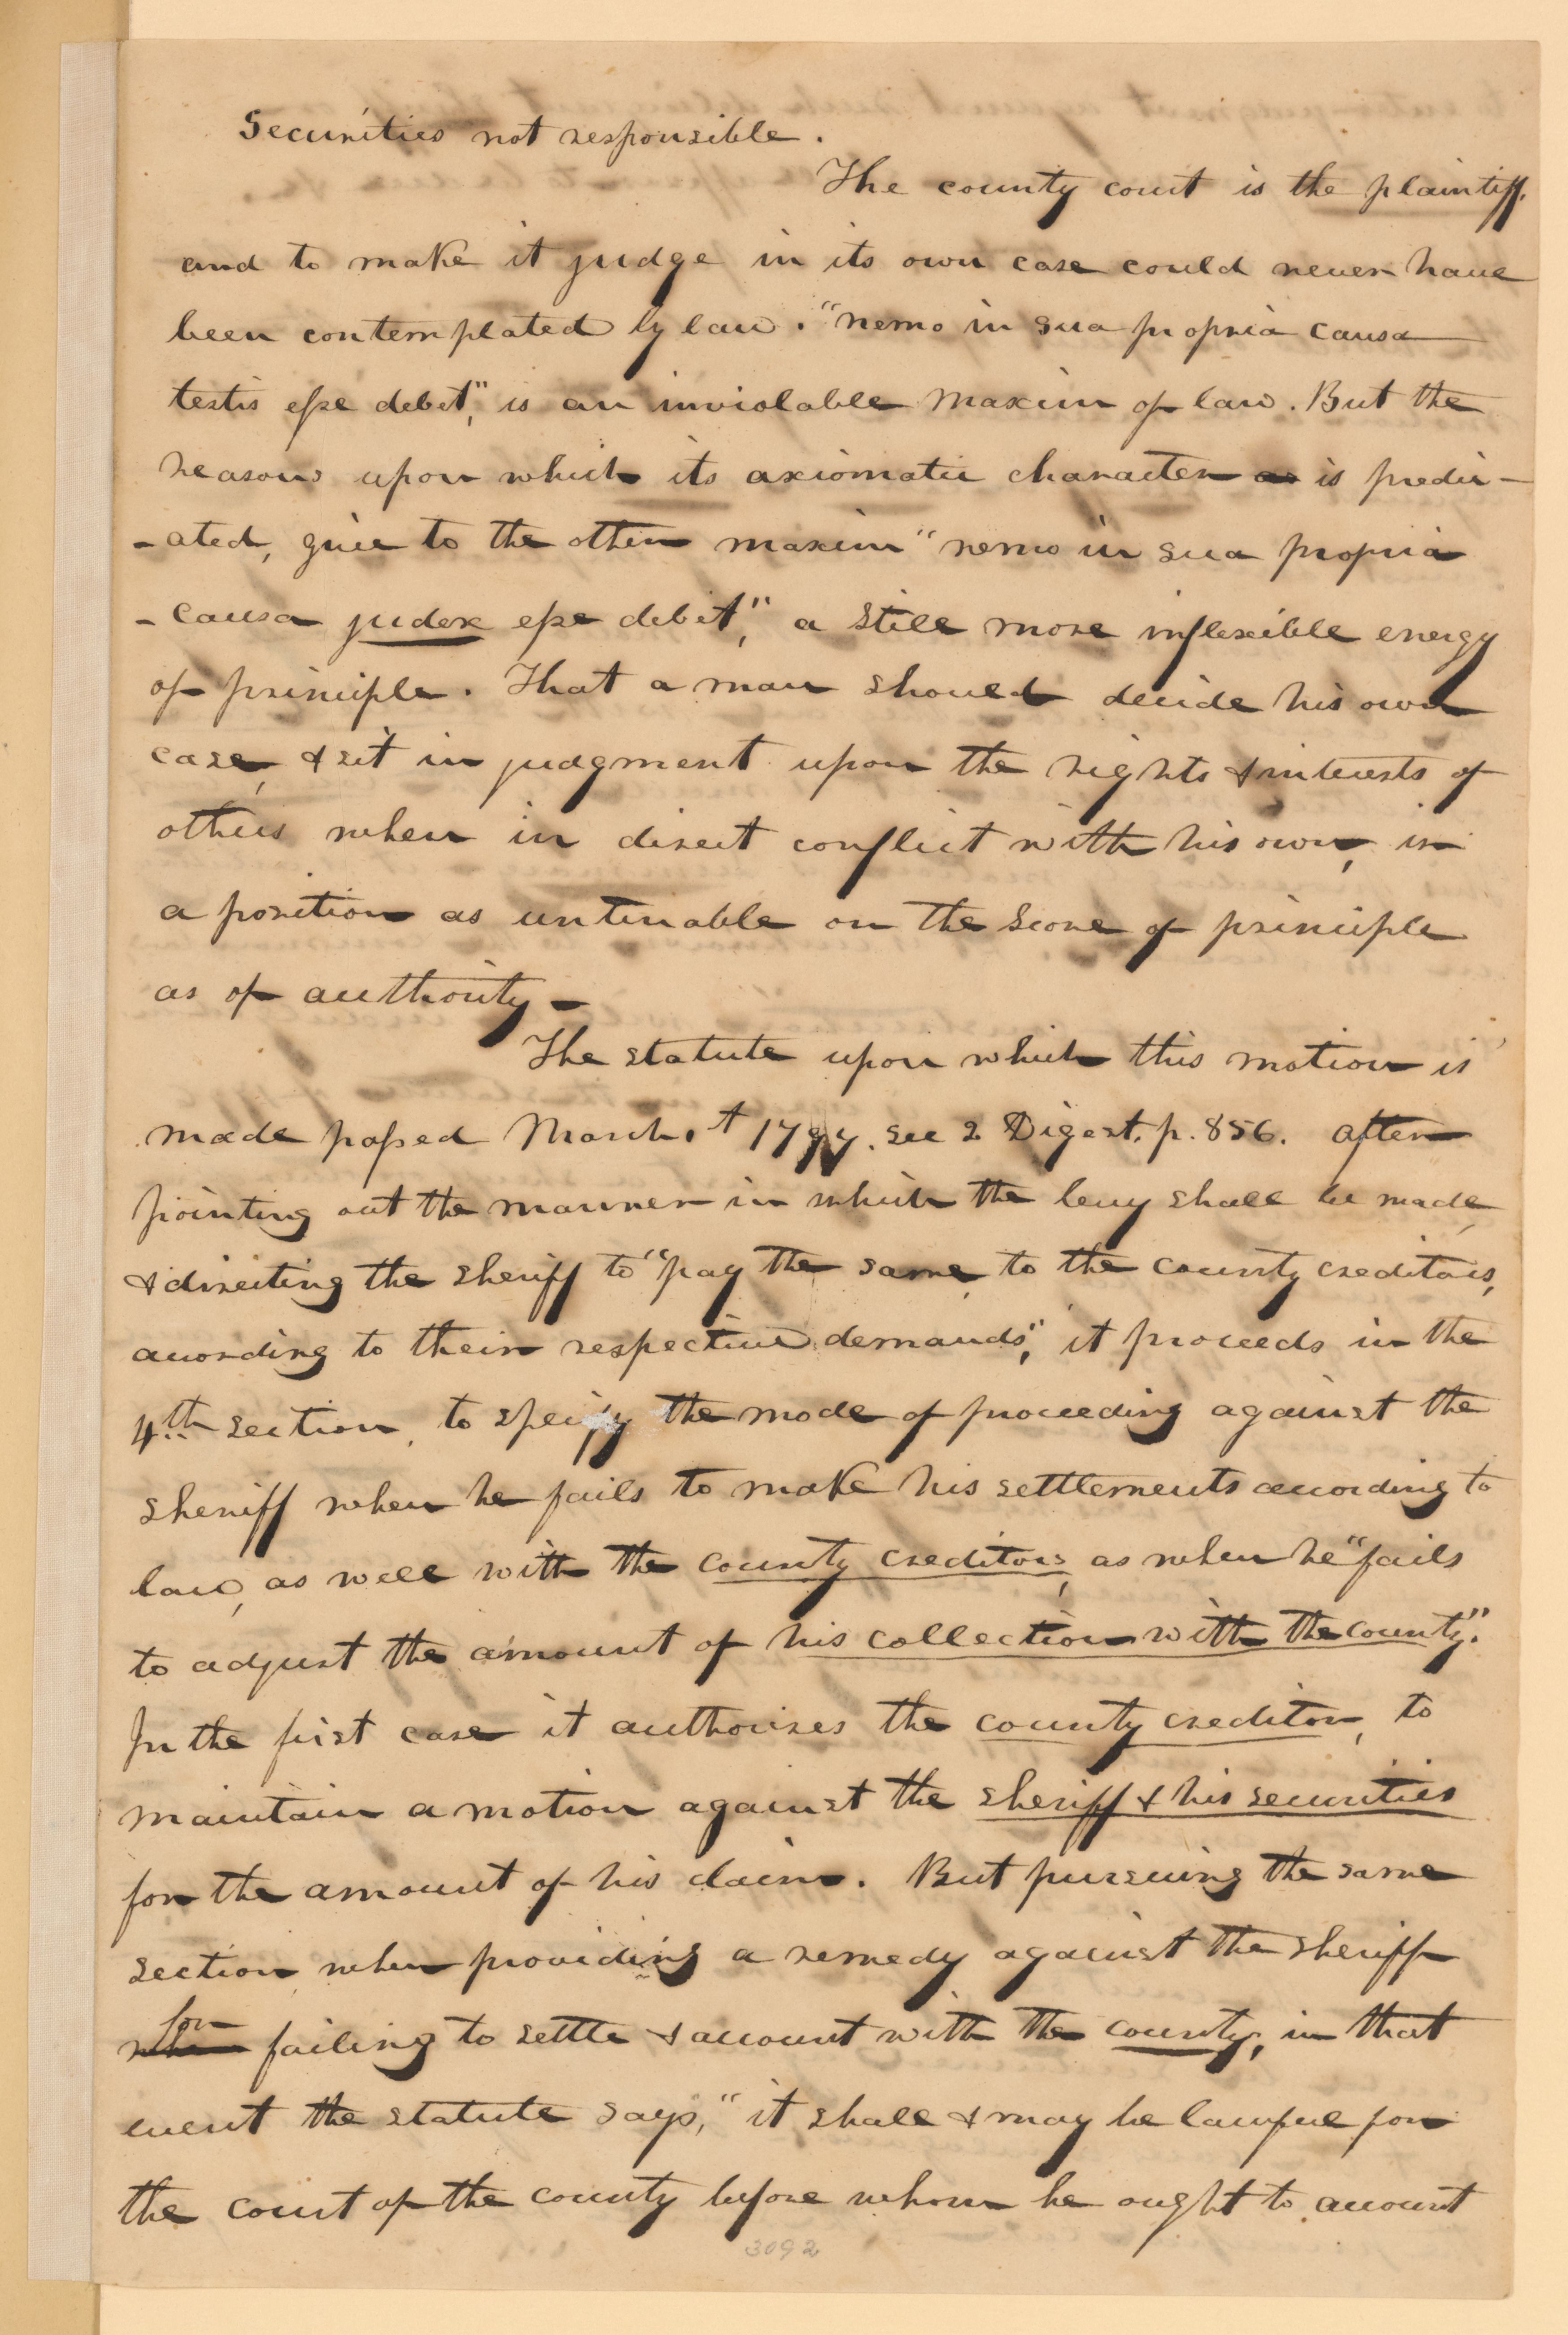 Securities not responsible.
The county court is the plaintiff,
and to make it judge in its own case could never have
been contemplated by law. "nemo in sua propria causa
testis esse debet", is an inviolable maxim of law. But the
reasons upon which its axiomatic character as is predic-
-ated, give to the other maxim "nemo in sua propria
- causa judex esse debet", a still more inflexible energy
of principle. That a man should decide his own
case, & sit in judgment upon the rights & interests of
others when in direct conflict with his own, is
a position as untenable on the score of principle
as of authority -
The statute upon which this motion is
made passed March 1st 1797. see 2 Digest. p. 856. after
pointing out the manner in which the levy shall be made,
& directing the sheriff to "pay the same, to the county creditors,
according to their respective demands", it proceeds in the
4th section, to specify the mode of proceeding against the
sheriff when he fails to make his settlements according to
law, as well with the county creditors, as when he "fails
to adjust the amount of his collection with the county".
In the first case it authorises the county creditor, to
maintain a motion against the sheriff & his securities
for the amount of his claim. But pursuing the same
section when providing a remedy against the sheriff
for
when failing to settle & account with the county, in that
event the statute says, "it shall & may be lawful for
the court of the county before whom he ought to account
3092